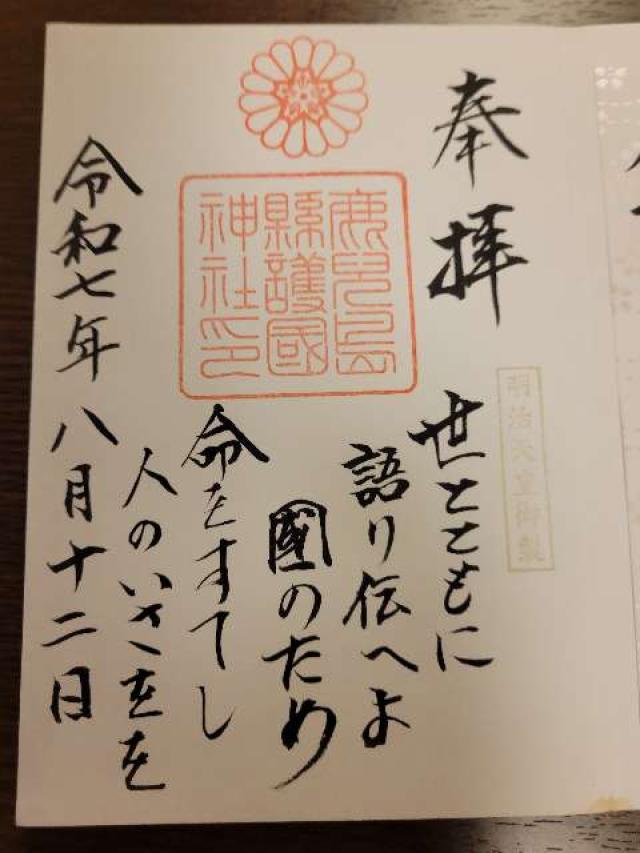 奉拝
明治天皇御製
世とともに
語り伝へよ
國のため
命をすてし
人のいさををを
令和七年八月十二日
鹿児島
縣護國
神社印